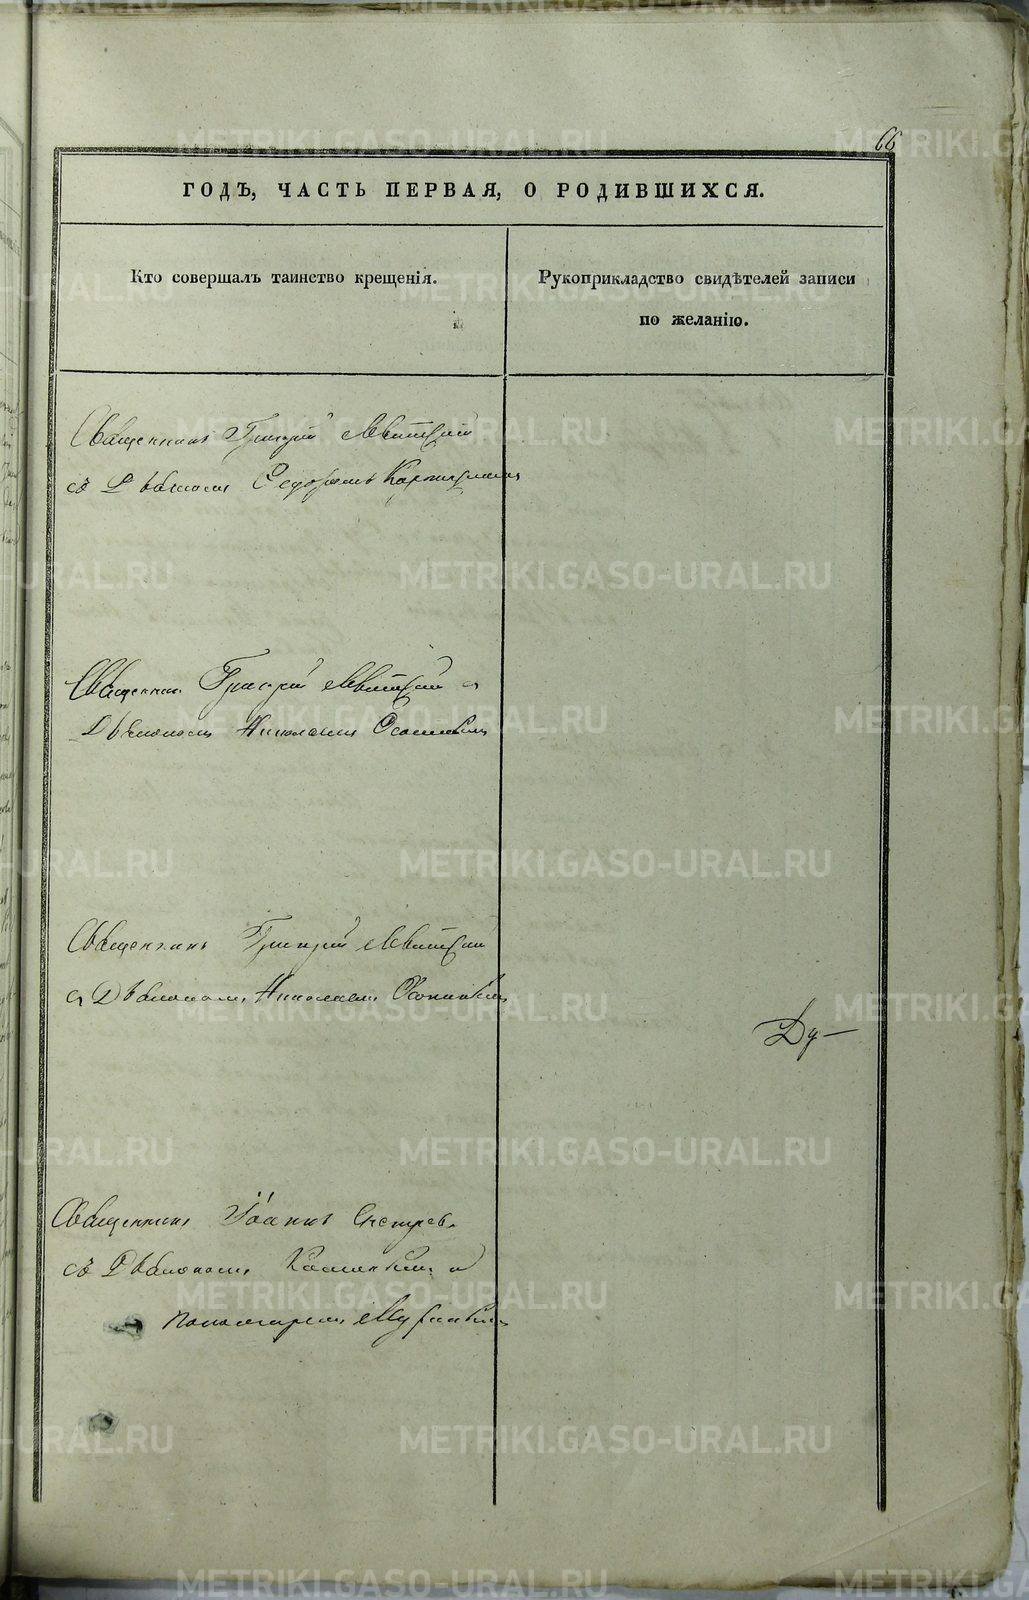 66
ГОДЪ, ЧАСТЬ ПЕРВАЯ, О РОДИВШИХСЯ.
Кто совершалъ таинство крещенія.
Рукоприкладство свидѣтелей записи
по желанію.
Священникъ Григорій Левитскій
съ Дьякономъ Федоромъ
Священник Григорій Левитскій с
Дьякономъ Николаемъ
Священникъ Григорій Левитскій
с Дьякономъ Николаемъ
Ду
Священникъ Іоаннъ
съ Дьякономъ и
пономаремъ
METRIKI.GASO-URAL.RU